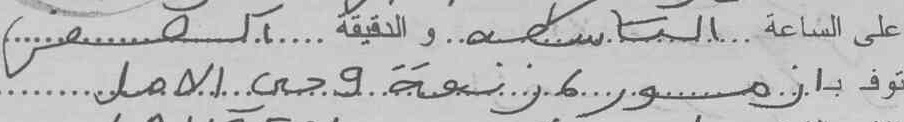 على الساعة التاسعة و الدقيقة الصفر
توف بازمور زنقة وجى الامل